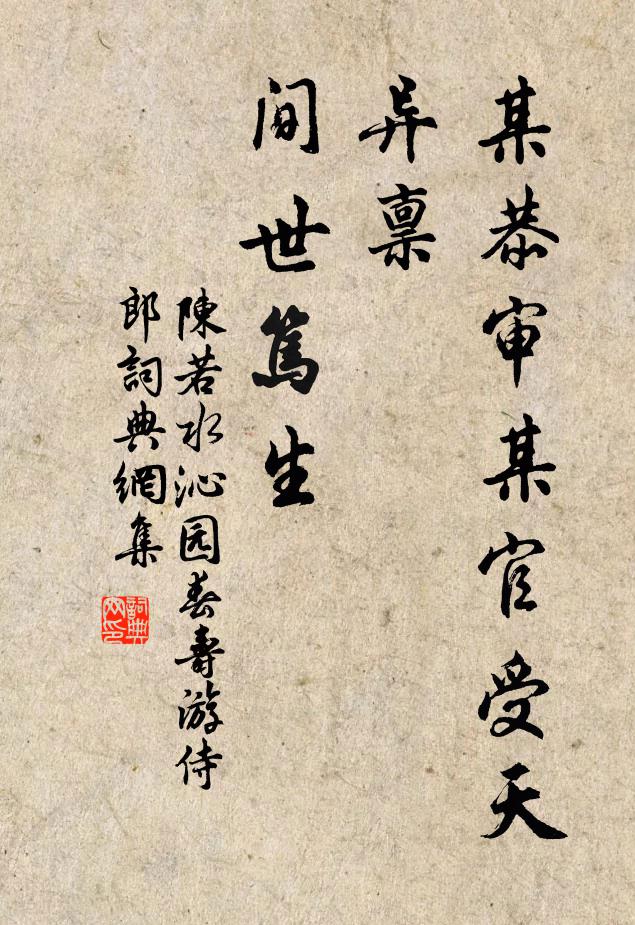 某恭审某官受天
异禀
间世笃生
陳若水沁园春壽游侍
郎詞典網集
詞典
网印